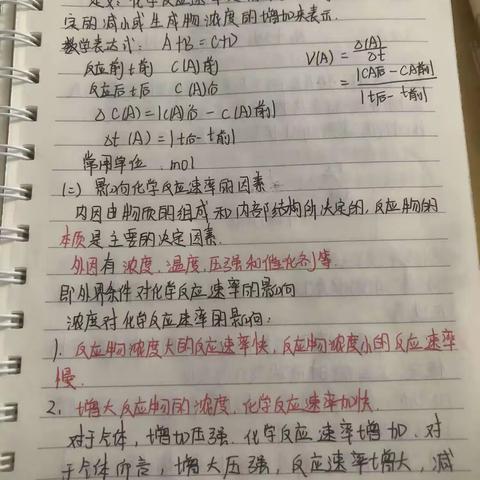 定的减小或生成物浓度的增加来表示.
数学表达式: A+B=C+D
反应前t前 C(A)前
反应后t后 C(A)后
△C(A)=|C(A)后-C(A)前|
△t(A)=|t后-t前|
V(A)=△(A)/△t
=|CA后-CA前|/|t后-t前|
常用单位 mol
(二) 影响化学反应速率的因素
内因由物质的组成和内部结构所决定的,反应物的
本质是主要的决定因素.
外因有浓度.温度.压强和催化剂等.
即外界条件对化学反应速率的影响
浓度对化学反应速率的影响:
1. 反应物浓度大的反应速率快,反应物浓度小的反应速率
慢.
2. 增大反应物的浓度,化学反应速率加快.
对于气体,增加压强.化学反应速率增加.对
于气体而言,增大压强,反应速率增大,减